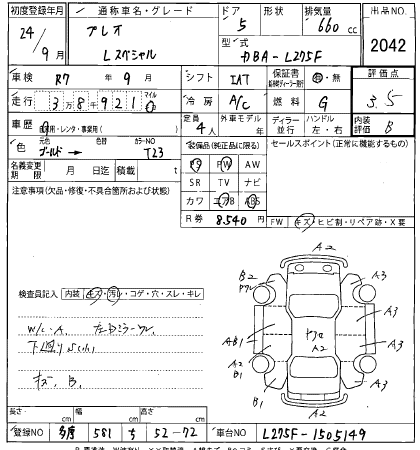 初度登録年月 通称車名・グレード ドア 形状 排気量 出品NO.
24/9月 プレオ Lスペシャル 5 660cc 2042
型式 DBA-L275F
車検 R7年9月 シフト IAT 保証書 有・無 評価点
走行 38921 マイル 冷房 A/C 燃料 G 3.5
車歴 自家用・レンタ・事業用 定員 4人 外車モデル ディーラー 並行 ハンドル 左・右 内装評価 B
色 元色 ゴールド 色替 カラーNO T23 装備品(純正品に限る) セールスポイント(正常に機能するもの)
名義変更期限 月 日迄 積載 t PS PW AW
注意事項(欠品・修復・不具合箇所および状態) SR TV ナビ
カワ エアB ABS
R券 8.540円 FW キズ・ヒビ割・リペア跡・X要
A2
B2 A3
A3
AB1 A2
A2
A2 A3
B1
B1 A3
A2
検査員記入 内装 キズ・汚レ・コゲ・穴・スレ・キレ
W/C・A.
下廻り
B.
長さ cm 幅 cm 高さ cm
登録NO 多摩 581 ち 52-72 車台NO L275F-1505149